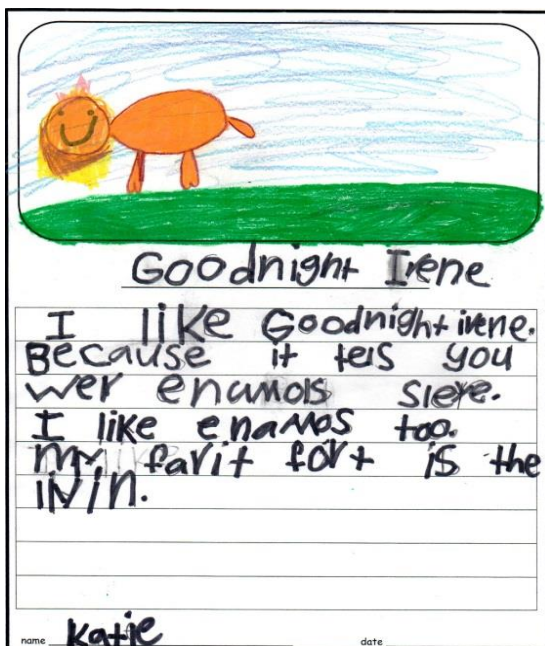 Goodnight Irene
I like Goodnight irene.
Because it tels you
wer enamols slepe.
I like enamos too.
my farit fort is the
liyin.
name Katie
date